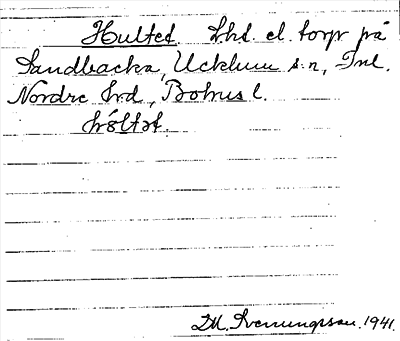 Hulted. Lhs. el. torp på
Sandbacka, Ucklum s:n, Inl.
Nordre hrd, Bohus l.
M. Svenungsson. 1941.